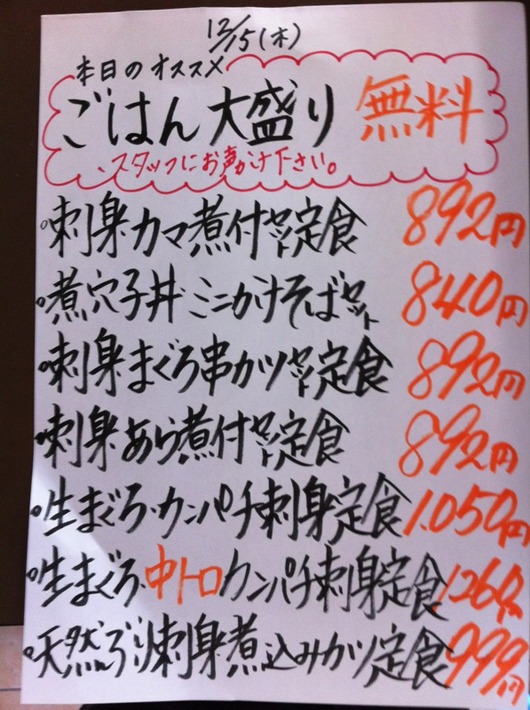 12/15(木)
本日のオススメ
ごはん大盛り 無料
スタッフにお声がけ下さい。
刺身カマ煮付セット定食 892円
煮穴子丼ミニかけそばセット 840円
刺身まぐろ串カツセット定食 892円
刺身あら煮付セット定食 892円
生まぐろ・カンパチ刺身定食 1.050円
生まぐろ・中トロカンパチ刺身定食 1260円
天然ぶり刺身煮込みカツ定食 999円